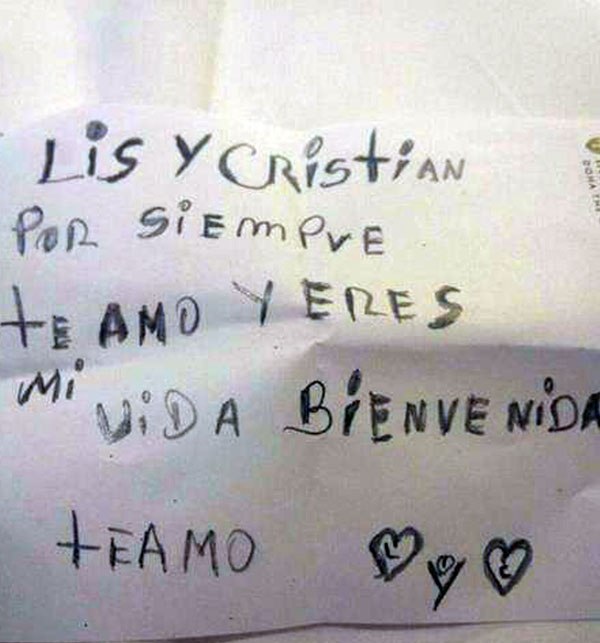 Lis y CRistiAN
PoR SiEmPrE
tE AMO Y ERES
Mi
ViDA BiENVENiDA
tEAMO L y C
DOHA